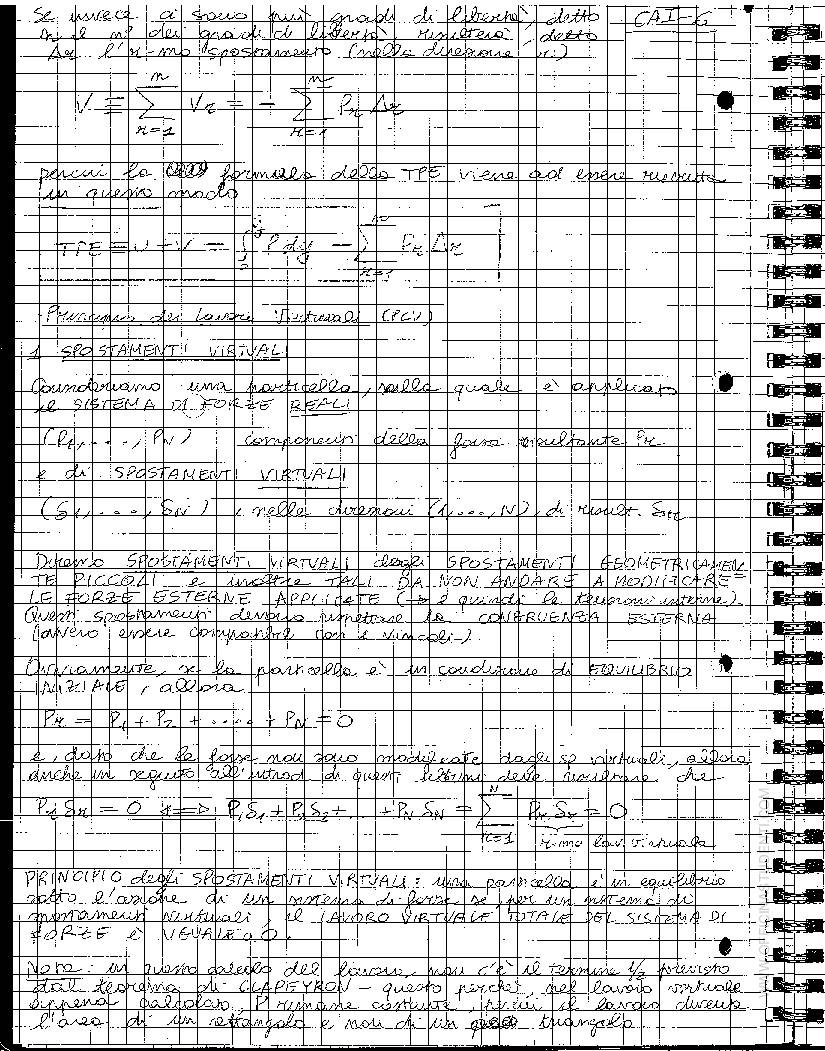 Se invece ci sono più gradi di libertà, detto CAI-6
n il n° dei gradi di libertà, risulterà, detto
Δr l'r-mo spostamento (nella direzione r:)
V = Σ Vr = - Σ Pr Δr
n n
r=1 r=1
percui la formula della TPE viene ad essere riscritta
in questo modo
TPE = U + V = ∫ P dy - Σ Pr Δr
r=1
Principio dei Lavori Virtuali (PLV)
1 SPOSTAMENTI VIRTUALI
Consideriamo una particella, sulla quale è applicato
il SISTEMA DI FORZE REALI
(P1, ...., PN) componenti della forza risultante Pr
e di SPOSTAMENTI VIRTUALI
(δ1, ...., δN), nelle direzioni (1, ..., N), di result. δr
Diremo SPOSTAMENTI VIRTUALI degli SPOSTAMENTI GEOMETRICAMEN
TE PICCOLI e inoltre TALI DA NON ANDARE A MODIFICARE
LE FORZE ESTERNE APPLICATE (→ e quindi le tensioni interne).
Questi spostamenti devono rispettare la CONGRUENZA ESTERNA
(ovvero essere compatibili con i vincoli.)
Ovviamente, se la particella è in condizione di EQUILIBRIO
INIZIALE, allora
Pr = P1 + P2 + .... + PN = 0
e, dato che le forze non sono modificate dagli sp virtuali, allora
anche in seguito all'introd di questi ultimi deve risultare che
Pr δr = 0 <=> P1δ1 + P2δ2 + ... + PNδN = Σ Pr δr = 0
N
r=1 r-mo lav. virtuale
PRINCIPIO degli SPOSTAMENTI VIRTUALI: una particella è in equilibrio
sotto l'azione di un sistema di forze se, per un sistema di
spostamenti virtuali, il LAVORO VIRTUALE TOTALE DEL SISTEMA DI
FORZE È UGUALE a 0.
Nota: in questo calcolo del lavoro, non c'è il termine 1/2 previsto
dal teorema di CLAPEYRON - questo perché, nel lavoro virtuale
appena calcolato, P rimane costante, percui il lavoro diventa
l'area di un rettangolo e non di un triangolo